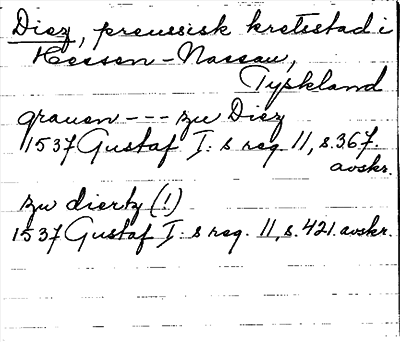 Diez, preussisk kretsstad i
Hessen-Nassau,
Tyskland
grauen --- zu Diez
1537 Gustaf I:s reg 11, s.367.
avskr.
zu diertz (!)
1537 Gustaf I:s reg. 11, s.421. avskr.